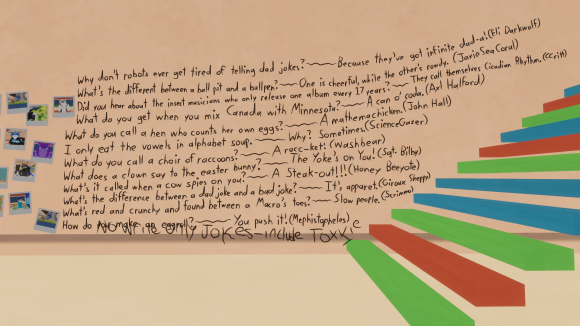 Why don't robots ever get tired of telling dad jokes?~~~~Because they've got infinite dad-a!(Eli Darkwolf)
What's the different between a ball pit and a ballpen?~~~~One is cheerful, while the other's rowdy. (JavioSeaCoral)
Did you hear about the insect musicians who only release one album every 17 years?~~~~They call themselves Cicadian Rhythm. (CCrift)
What do you get when you mix Canada with Minnesota?~~~~A can o' coda.(Axl Halford)
What do you call a hen who counts her own eggs?~~~~A mathemachicken.(John Hall)
I only eat the vowels in alphabet soup.~~~~Why? Sometimes.(ScienceGazer)
What do you call a choir of raccoons?~~~~A rocc-ket.(Washbear)
What does a clown say to the easter bunny?~~~~The Yoke's on You!(Sgt. Bilby)
What's it called when a cow spies on you?~~~~A Steak-out!!!(Honey Beeyote)
What's the difference between a dad joke and a bad joke?~~~~It's apparent.(Giroux Sheppo)
What's red and crunchy and found between a Macro's toes?~~~~Slow people.(Scrimno)
How do you make an eggroll?~~~~You push it!(Mephistopheles)
JoKes-include Toxxie